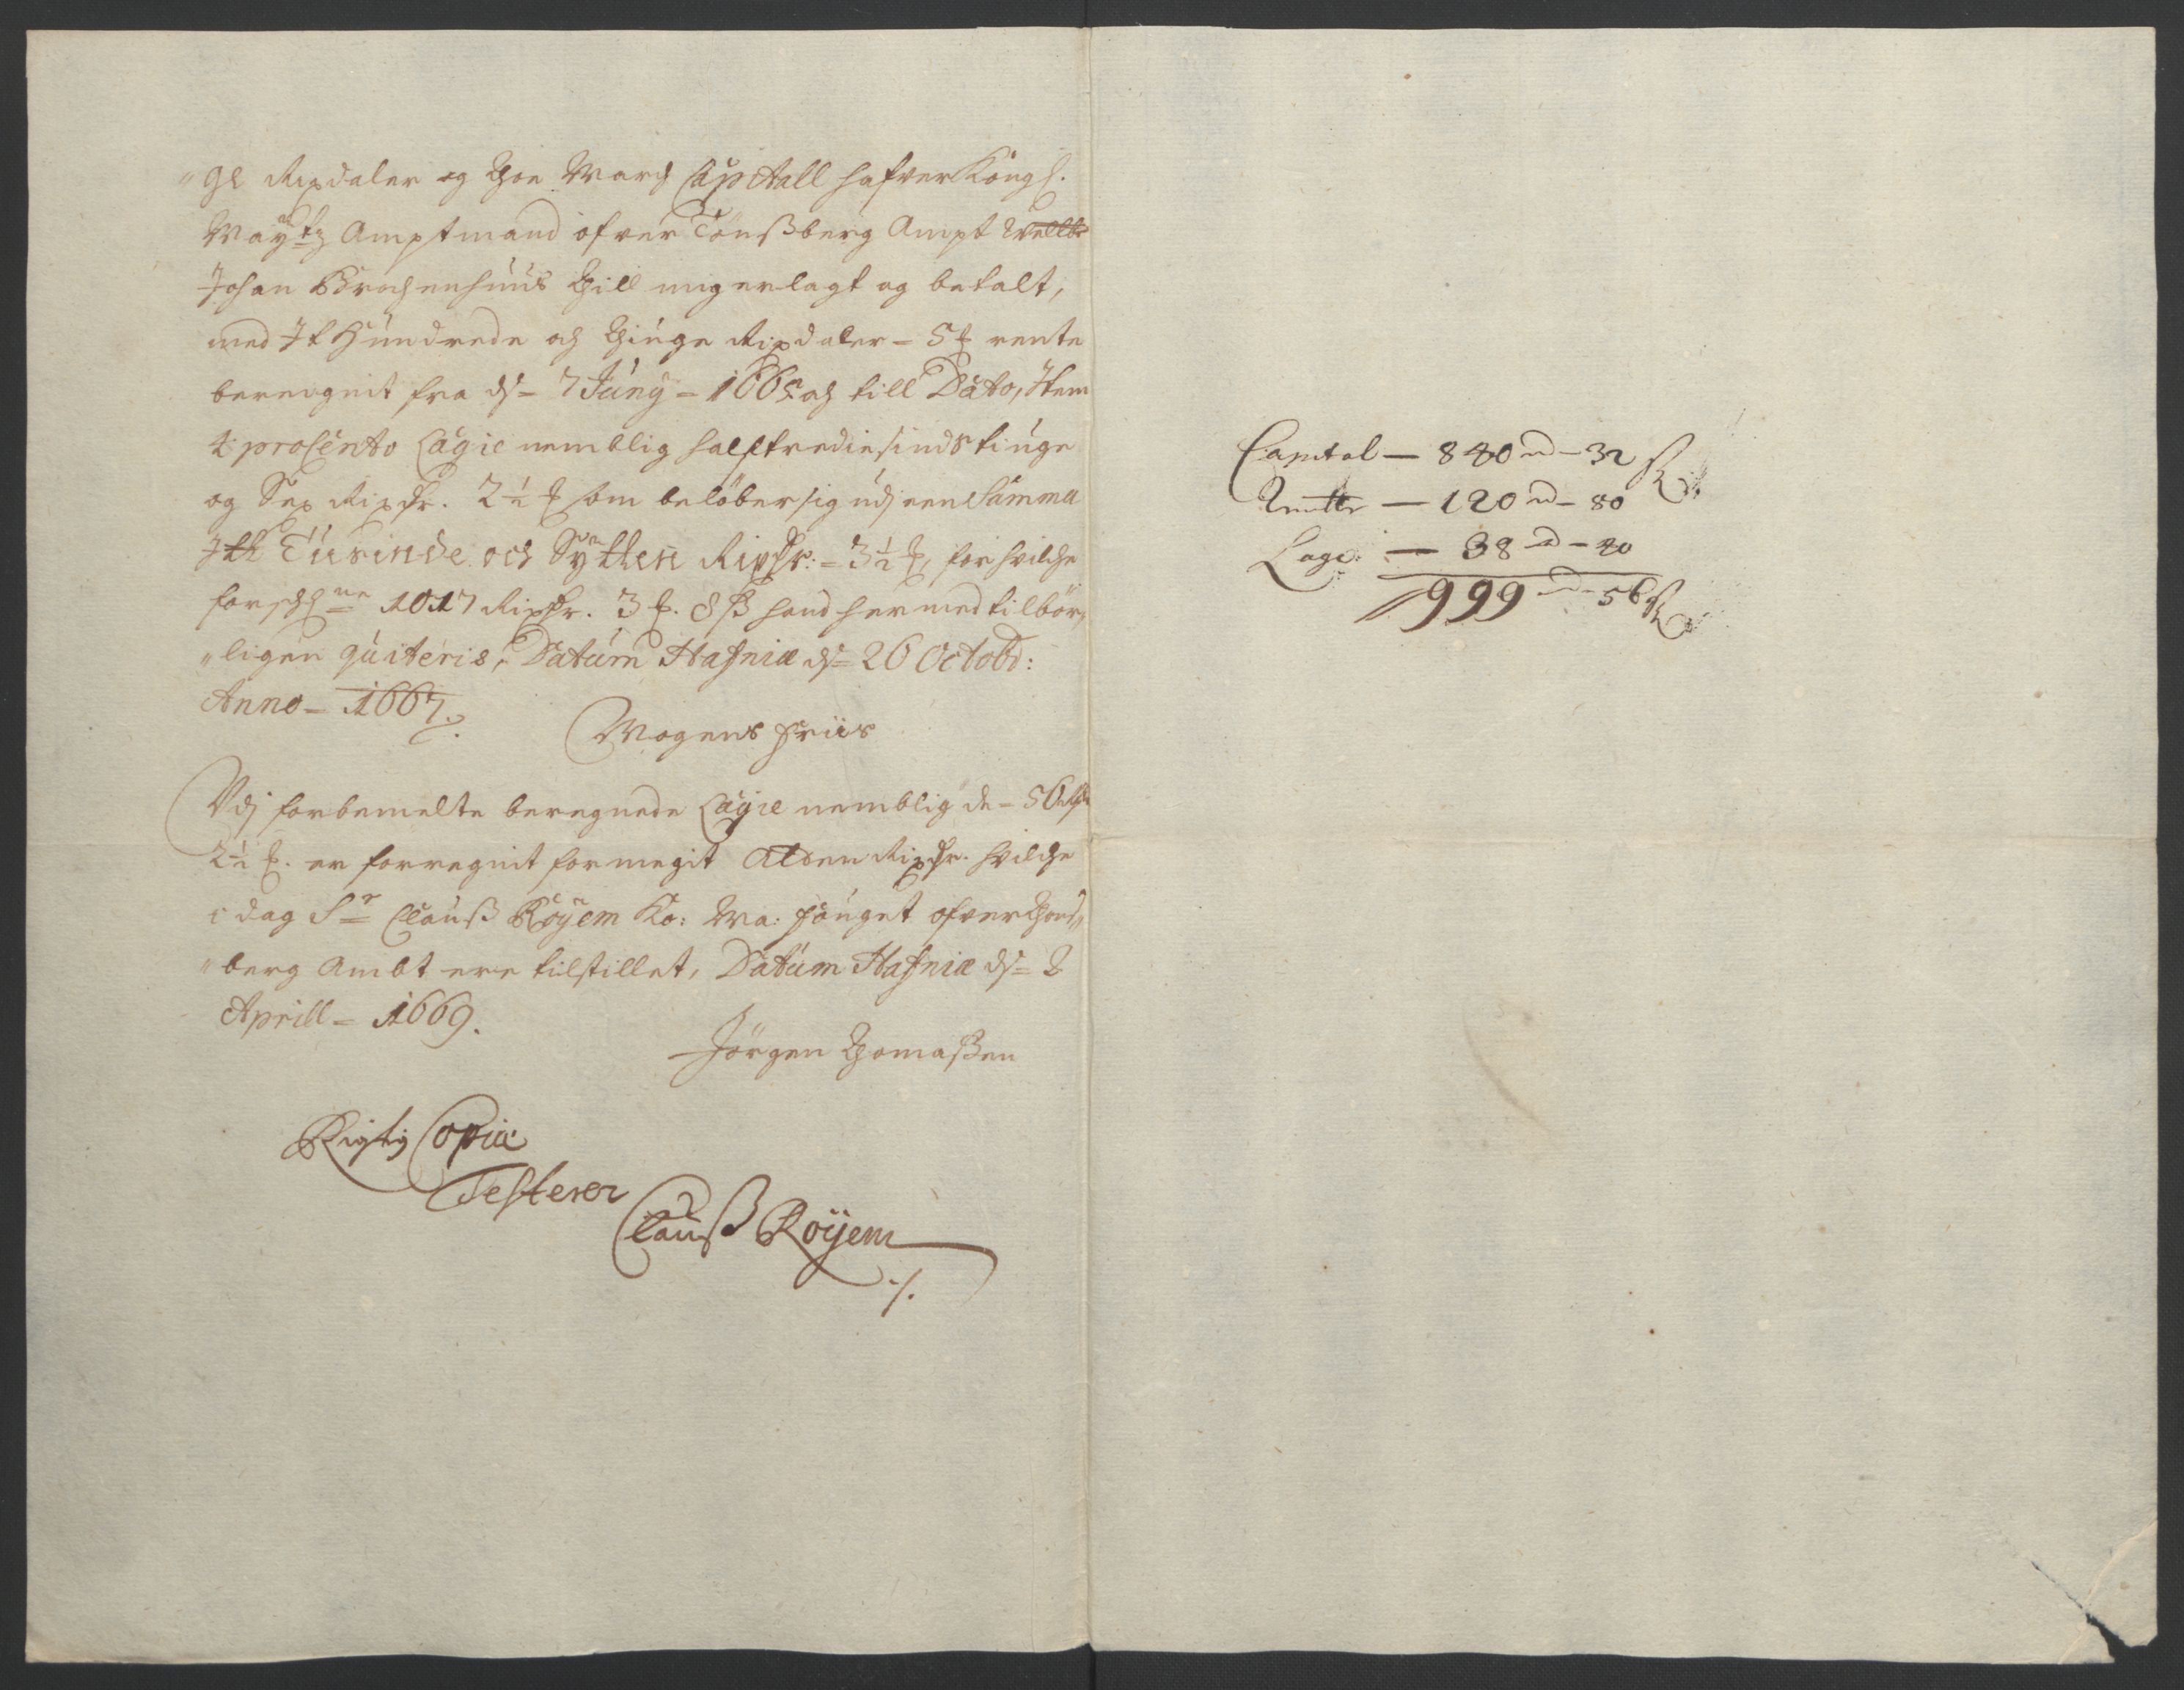 "ge Rixdaler og Thoe March Capitall hafver Kongl.
Maytz Amptmand ofver Tønßberg Ampt Welbr
Johan Brochenhuus thill mig erlagt og betalt,
med It Hundrede og Thiuge Rixdaler = 5 rente
beregnit fra ds= 7 Juny = 1665 och till Dato, Item
4 procento Lagie nemblig halftrediesindstiuge
og Sex Rixdr. 2½ som beløber sig udj een Summa
Itt Tusinde och Sytten Rixdr: = 3½, for hvilche
forschne 1017 Rixdr. 3 8ß hand hermed tilbør,
"ligen quiteris, Datum Hafniæ ds= 26 Octobr:
Anno = 1667.
Mogens Friis
Udj forbemelte beregnede Lagie nemblig de = 56
2½ er forregnit formegit Atten Rixdr. hvilche
i dag Sr Clauß Røyem Ko: Ma: fouget ofver Thons,,
"berg Ambt ere tilstillet, Datum Hafniæ ds= 2
Aprill = 1669.
Jørgen Thomaßen
Rigtig Copia
Testerer
Clauß Röyem
./.
Capital — 840 — 32
Rentte — 120 — 80
Lage: — 38 — 40
999 — 56